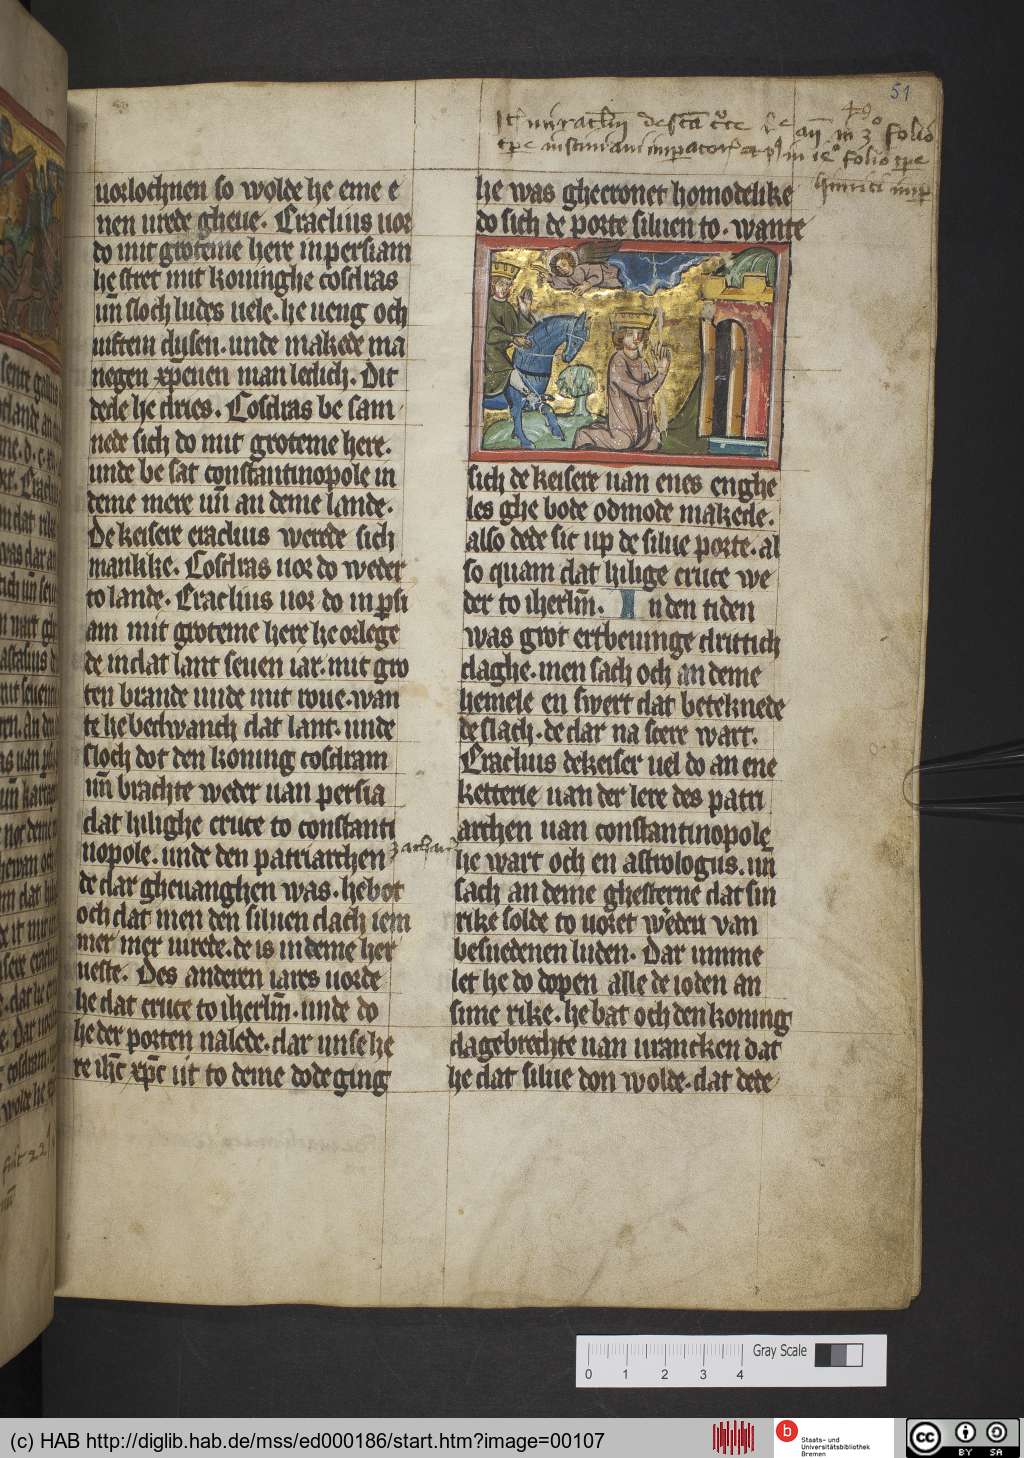 51
uorlochnen so wolde he eme e
nen urede gheue. Eraclius uor
do mit groteme here in persiam
he stret mit koninghe cosdras
uñ sloch ludes uele. he ueng och
dusen. unde makede ma
negen xp̄enen man ledich. Dit
dede he dries. Cosdras be sam
nede sich do mit groteme here.
unde be sat constantinopole in
deme mere uñ an deme lande.
De keisere eraclius werede sich
mankke. Cosdras uor do weder
to lande. Eraclius uor do in p̱si
am mit groteme here he orlege
de in dat lant seuen iar. mit gro
ten brande unde mit roue. wan
te he bedwanch dat lant. unde
sloch dot den koning cosdram
uñ brachte weder uan persia
dat hilighe cruce to constanti
nopole. unde den patriarchen
zachari
de dar gheuanghen was. he bot
och dat men den siluen dach iem
mer mer urede. de is in deme her
ueste. Des anderen iares uorde
he dat cruce to iherlm̄. unde do
he der porten nalede. dar unse he
re ihc̄ xpc̄ ut to deme dode ging
he was ghecronet homodelike
do sich de porte siluen to. wante
sich de keisere uan enes enghe
les ghe bode odmode makede.
also dede sic up de silue porte. al
so quam dat hilige cruce we
der to iherlm̄. In den tiden
was grot ertbeuinge drittich
daghe. men sach och an deme
hemele en swert dat beteknede
de slach. de dar na scere wart.
Eraclius de keiser uel do an ene
ketterie uan der lere des patri
archen uan constantinopole
he wart och en astrologus. uñ
sach an deme ghesterne dat sin
rike solde to uoret werden van
besnedenen luden. Dar umme
let he do dopen alle de ioden an
sime rike. he bat och den koning
dagebrechte uan urancken dat
he dat silue don wolde. dat dede
0 1 2 3 4
Gray Scale
(c) HAB http://diglib.hab.de/mss/ed000186/start.htm?image=00107
b
Staats- und
Universitätsbibliothek
Bremen
cc BY SA